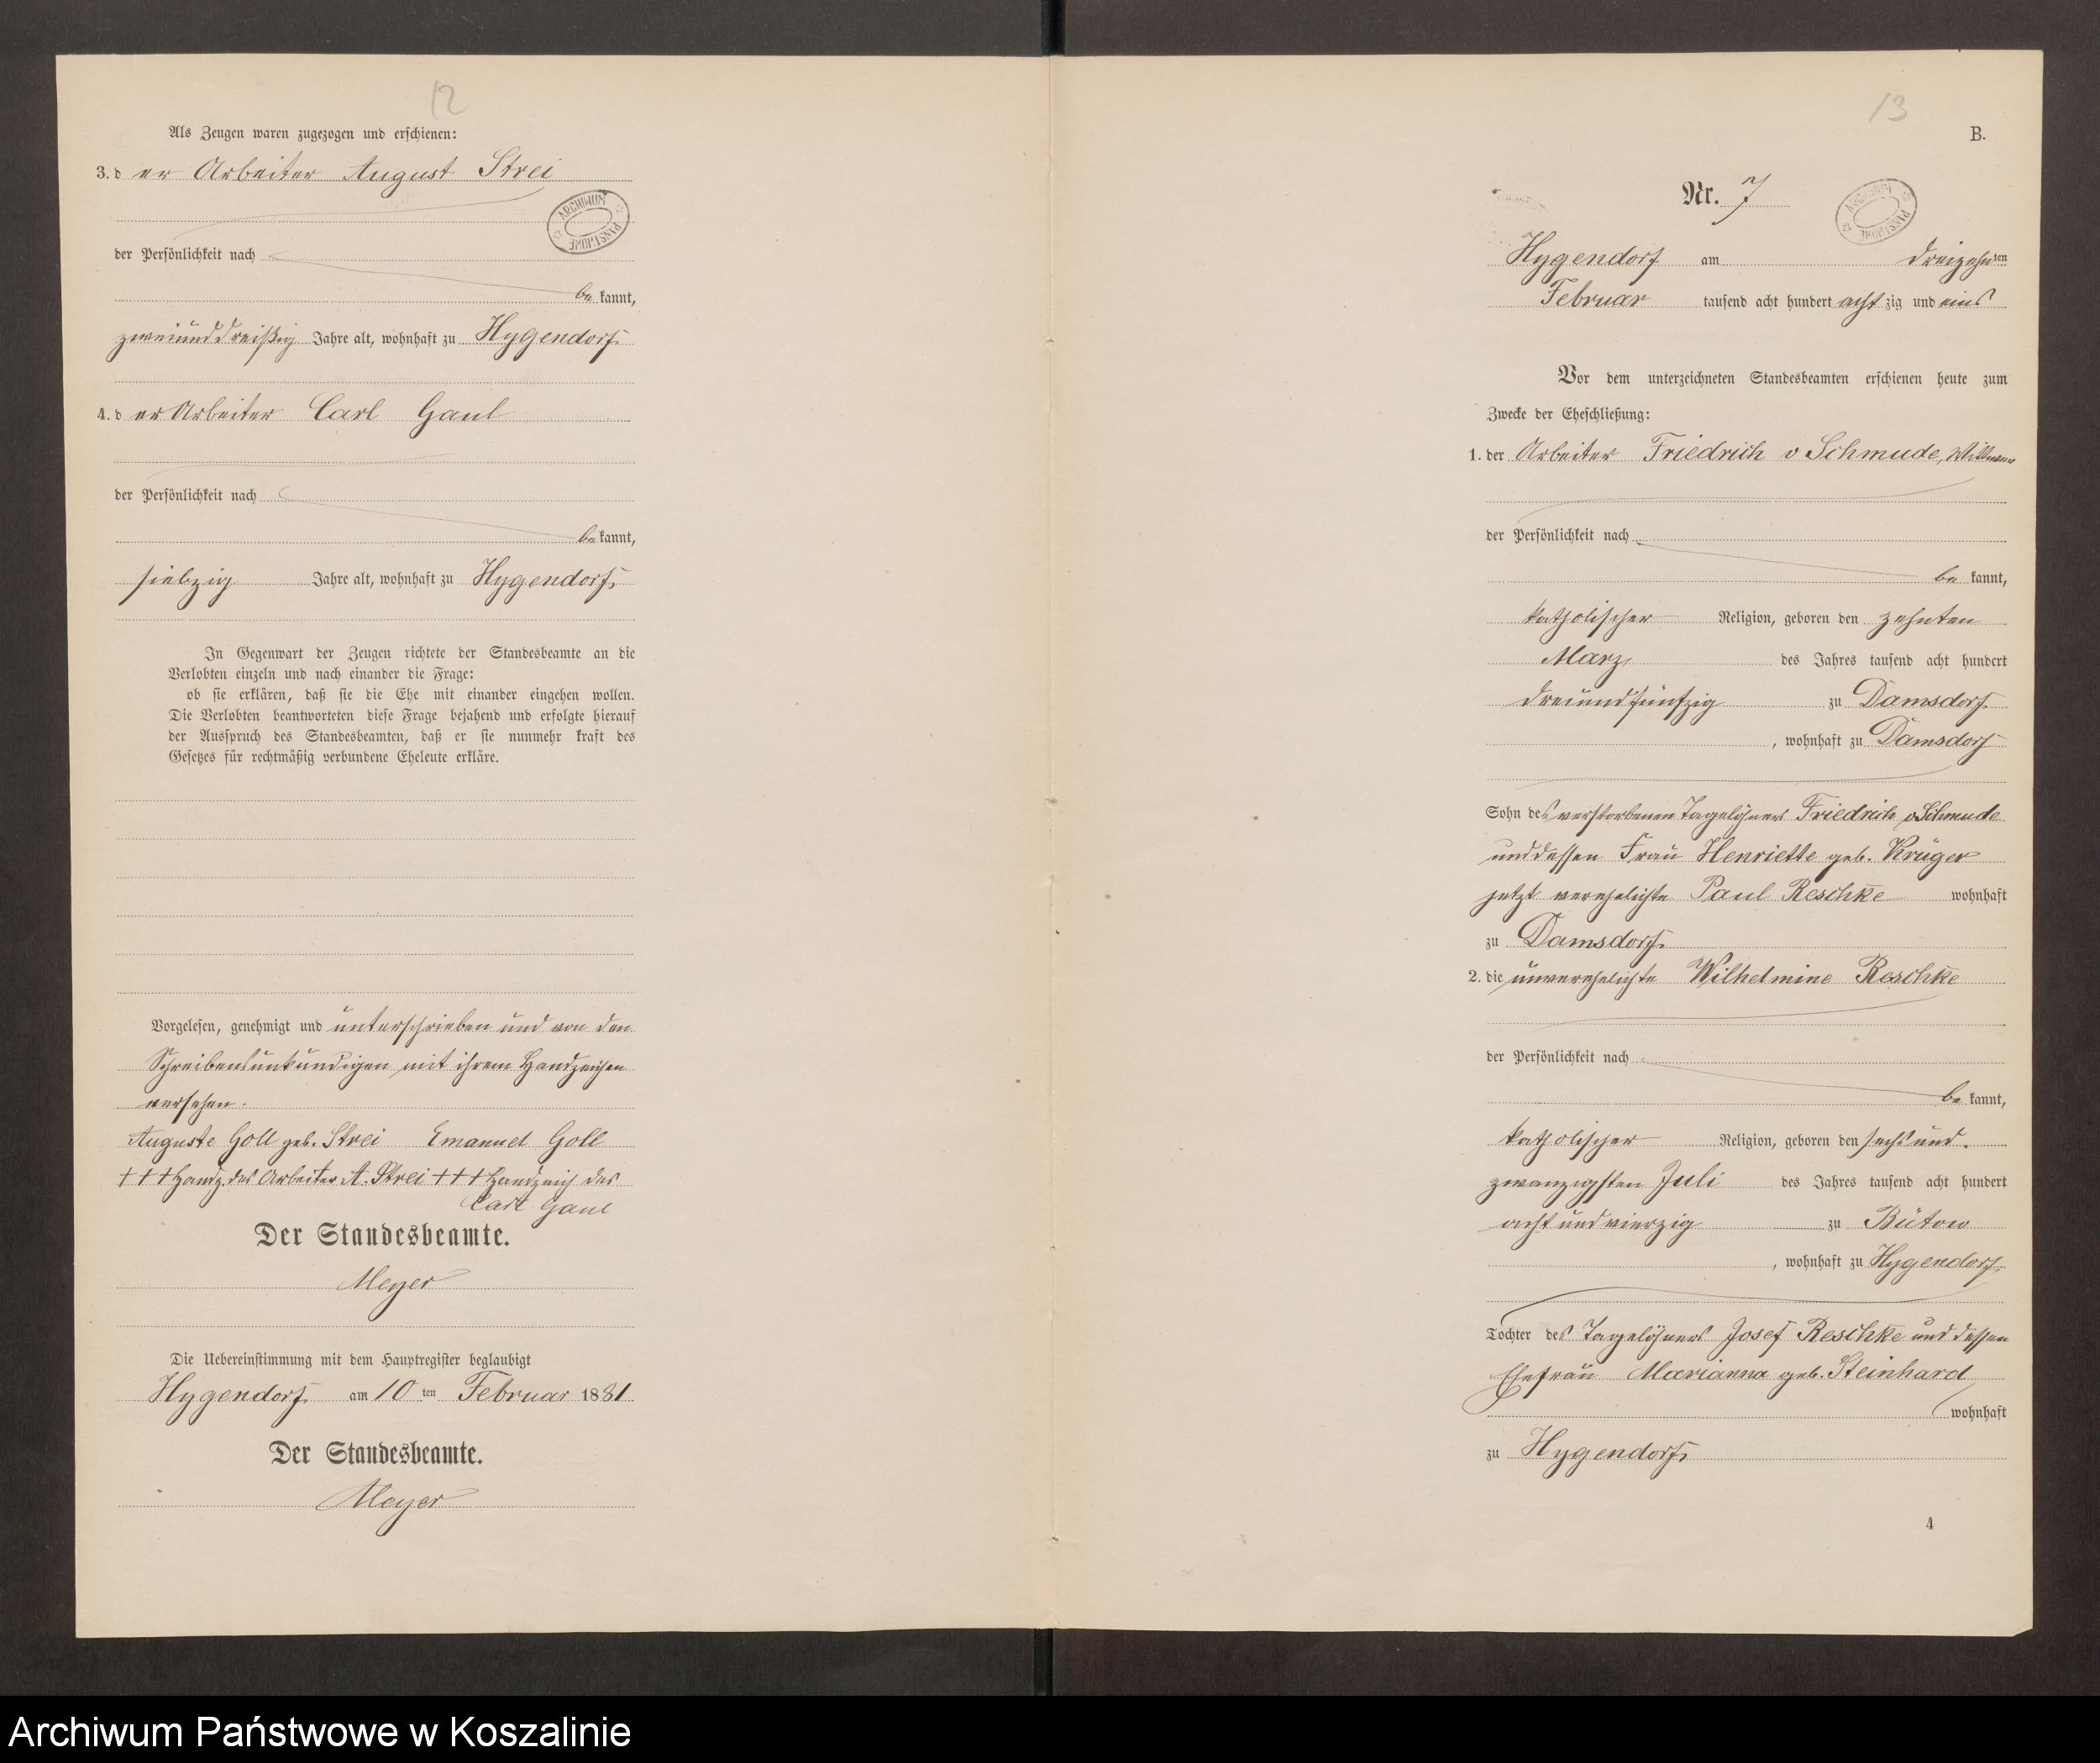 12
Als Zeugen waren zugezogen und erschienen:
3. d er Arbeiter August Strei
ARCHIWUM PAŃSTWOWE
der Persönlichkeit nach
be kannt,
zweiunddreißig Jahre alt, wohnhaft zu Hygendorf.
4. d er Arbeiter Carl Gaul
der Persönlichkeit nach
be kannt,
siebzig Jahre alt, wohnhaft zu Hygendorf,
In Gegenwart der Zeugen richtete der Standesbeamte an die
Verlobten einzeln und nach einander die Frage:
ob sie erklären, daß sie die Ehe mit einander eingehen wollen.
Die Verlobten beantworteten diese Frage bejahend und erfolgte hierauf
der Ausspruch des Standesbeamten, daß er sie nunmehr kraft des
Gesetzes für rechtmäßig verbundene Eheleute erkläre.
Vorgelesen, genehmigt und unterschrieben und von den
Schreibensunkundigen mit ihrem Handzeichen
versehen.
Auguste Goll geb. Strei Emanuel Goll
+++ Handz. des Arbeiter A. Strei +++ Handzeich des
Carl Gaul
Der Standesbeamte.
Meyer
Die Uebereinstimmung mit dem Hauptregister beglaubigt
Hygendorf am 10 ten Februar 1881
Der Standesbeamte.
Meyer
13
B.
Nr. 7
ARCHIWUM PAŃSTWOWE
Hygendorf am dreizehn ten
Februar tausend acht hundert acht zig und eins
Vor dem unterzeichneten Standesbeamten erschienen heute zum
Zwecke der Eheschließung:
1. der Arbeiter Friedrich v Schmude, Wittwer
der Persönlichkeit nach
be kannt,
katholischer Religion, geboren den zehnten
März des Jahres tausend acht hundert
dreiundfünfzig zu Damsdorf
, wohnhaft zu Damsdorf
Sohn des verstorbenen Tagelöhners Friedrich v Schmude
und dessen Frau Henriette geb. Krüger
jetzt verehelichte Paul Reschke wohnhaft
zu Damsdorf.
2. die unverehelichte Wilhelmine Reschke
der Persönlichkeit nach
be kannt,
katholischer Religion, geboren den sechsund
zwanzigsten Juli des Jahres tausend acht hundert
acht und vierzig zu Bütow
, wohnhaft zu Hygendorf
Tochter des Tagelöhners Josef Reschke und dessen
Ehefrau Marianna geb. Steinhard
wohnhaft
zu Hygendorf,
4
Archiwum Państwowe w Koszalinie